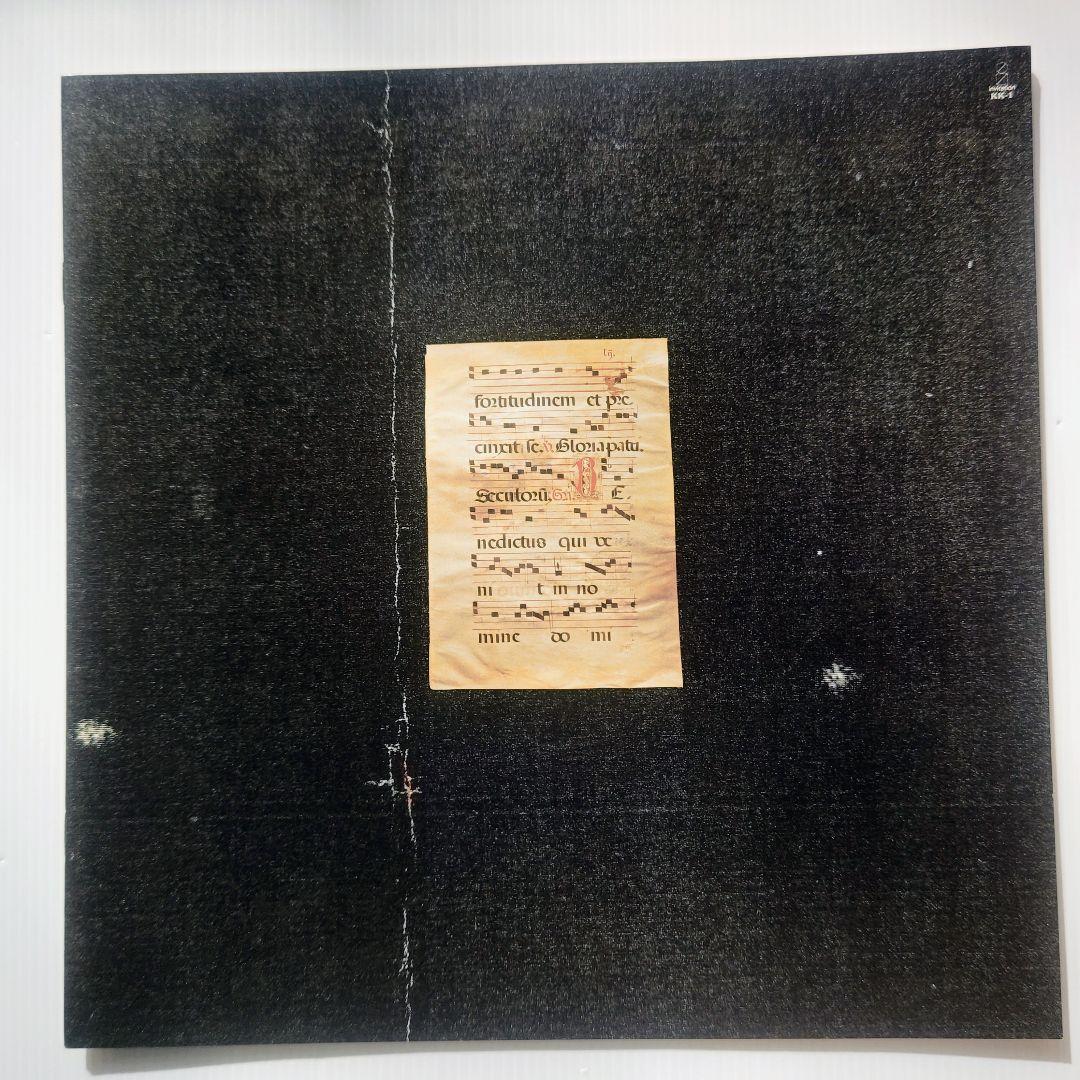 invitation
KK-1
lij.
fortitudinem et pre
cinxit se. Gloria patri.
Seculorū. B E
nedictus qui ve
ni t in no
mine do mi